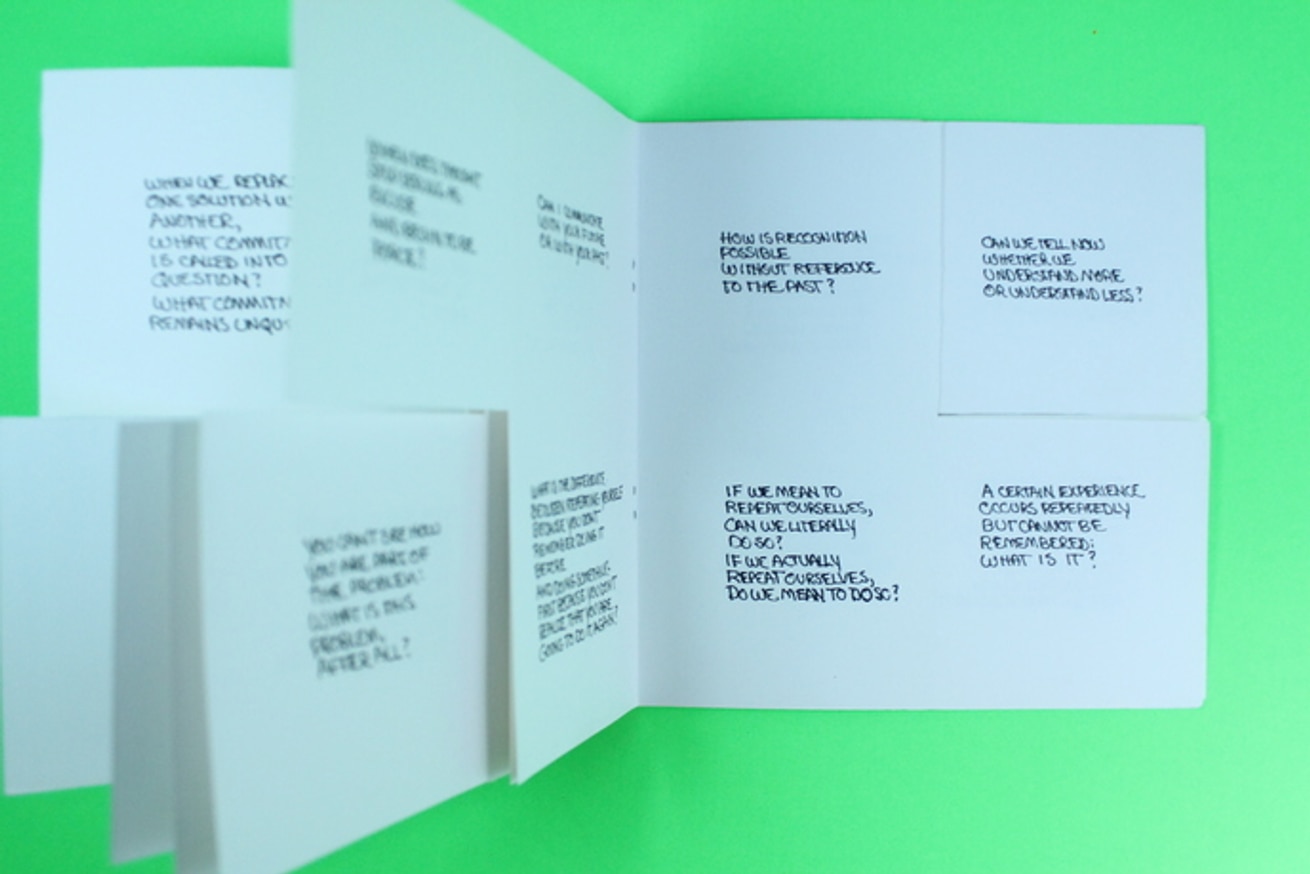 WHEN WE REPLAC
ONE SOLUTION W
ANOTHER,
WHAT COMMIT
IS CALLED INTO
QUESTION?
WHAT COMMITM
REMAINS UNQU
CAN I COMMUNE
WITH YOUR FUTURE
OR WITH YOUR PAST?
HOW IS RECOGNITION
POSSIBLE
WITHOUT REFERENCE
TO THE PAST?
CAN WE TELL NOW
WHETHER WE
UNDERSTAND MORE
OR UNDERSTAND LESS?
YOU CAN'T SEE HOW
YOU ARE PART OF
THE PROBLEM:
WHAT IS THIS
PROBLEM,
AFTER ALL?
WHAT IS THE DIFFERENCE
BETWEEN REPEATING YOURSELF
BECAUSE YOU DON'T
REMEMBER DOING IT
BEFORE
AND DOING SOMETHING
FIRST BECAUSE YOU DON'T
REALIZE THAT YOU ARE
GOING TO DO IT AGAIN?
IF WE MEAN TO
REPEAT OURSELVES,
CAN WE LITERALLY
DO SO?
IF WE ACTUALLY
REPEAT OURSELVES,
DO WE MEAN TO DO SO?
A CERTAIN EXPERIENCE
OCCURS REPEATEDLY
BUT CANNOT BE
REMEMBERED:
WHAT IS IT?